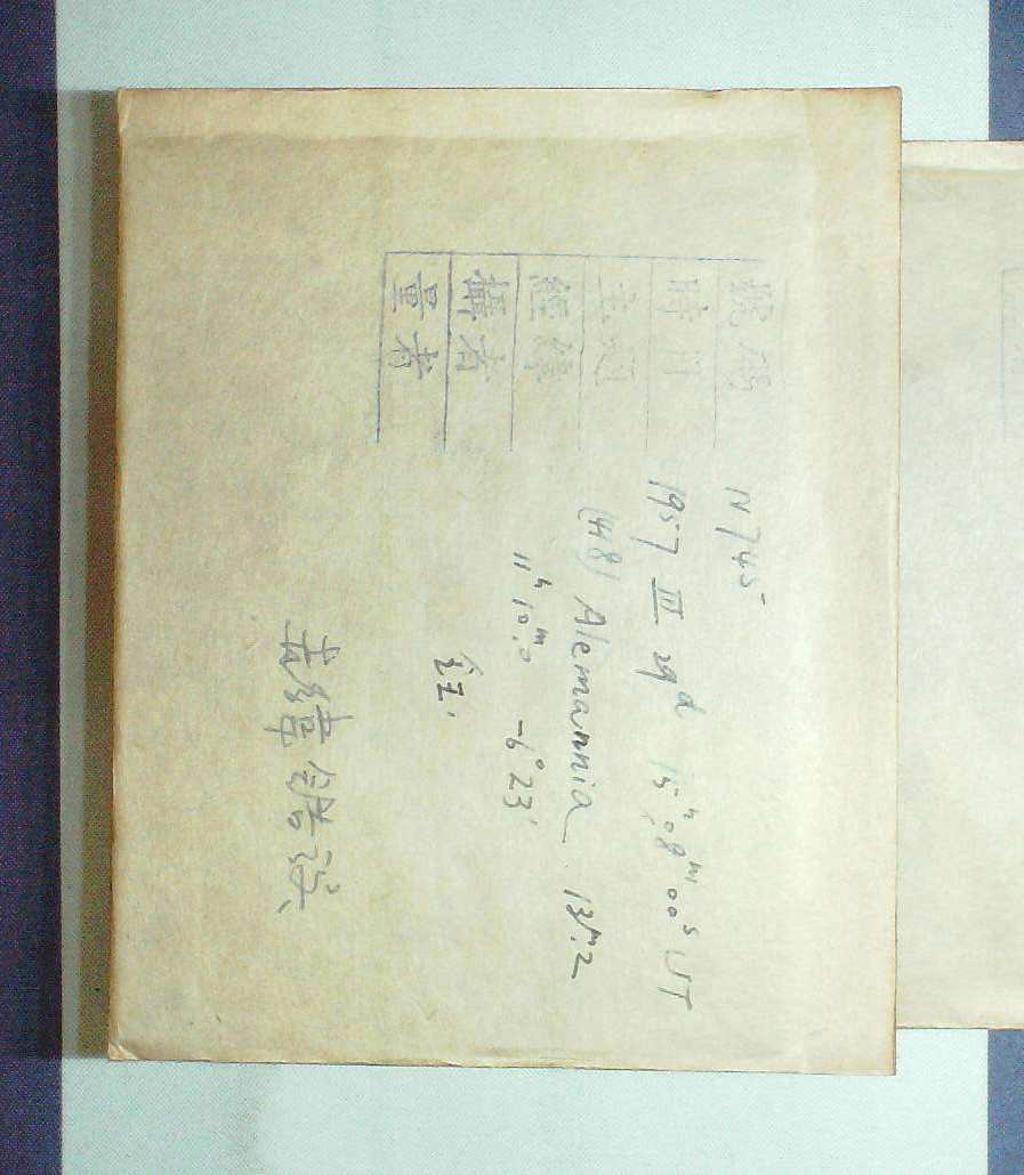 號碼 N 745
時日 1957 III 29ᵈ 15ʰ 08ᵐ 00ˢ UT
(418) Alemannia 13ᵐ.2
經緯 11ʰ 10ᵐ.0 -6° 23'
攝者
量者
赤緯錯誤